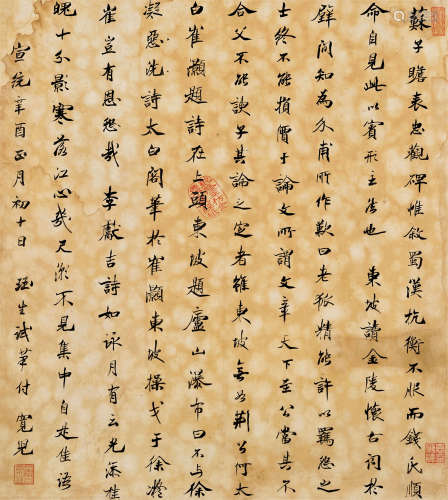 蘇子瞻表忠觀碑惟敘蜀漢抗衡不服而錢氏順
命自見此以賓形主法也 東坡讀金陵懷古詞於
壁間知為介甫所作歎曰老狐精能許以羈怨之
士終不能損價于論文所謂文章天下至公當其不
合父不能諛子其論之定者雖東坡無如荊公何太
白崔灝題詩在上頭東坡題廬山瀑布曰不與徐
凝惡洗詩太白閣筆於崔灝東坡操戈于徐凝
崔豈有恩怨哉 李獻吉詩如詠月有云光添桂
魄十分影寒落江心幾尺潮不見集中自是佳語
宣統辛酉正月初十日 生試筆付寬兒